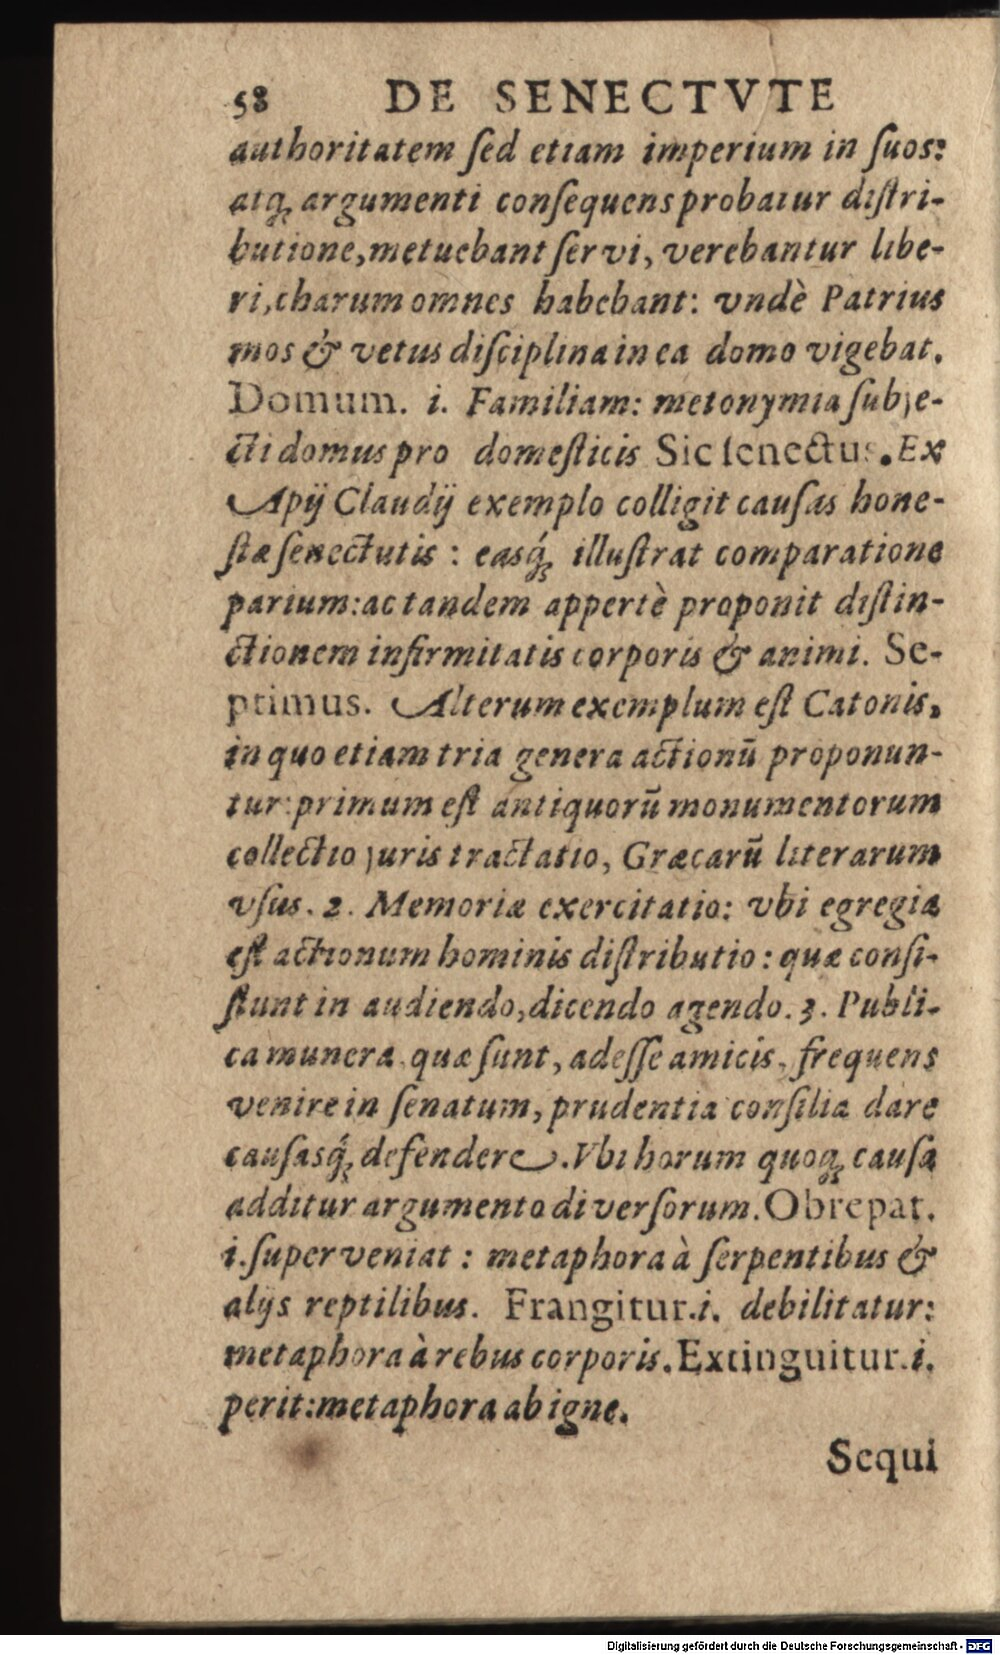 58 DE SENECTVTE
authoritatem ſed etiam imperium in ſuos:
atq́; argumenti conſequens probatur diſtri-
butione, metuebant ſervi, verebantur libe-
ri, charum omnes habebant: vndè Patrius
mos & vetus diſciplina in ea domo vigebat.
Domum. i. Familiam: metonymia ſubje-
cti domus pro domeſticis Sic ſenectus. Ex
Apij Claudij exemplo colligit cauſas hone-
ſtæ ſenectutis : easq́; illuſtrat comparatione
parium: ac tandem appertè proponit diſtin-
ctionem infirmitatis corporis & animi. Se-
ptimus. Alterum exemplum eſt Catonis,
in quo etiam tria genera actionū proponun-
tur: primum eſt antiquorū monumentorum
collectio juris tractatio, Græcarū literarum
vſus. 2. Memoriæ exercitatio: vbi egregia
eſt actionum hominis diſtributio : quæ conſi-
ſtunt in audiendo, dicendo agendo. 3. Publi-
ca munera, quæ ſunt, adeſſe amicis, frequens
venire in ſenatum, prudentia conſilia dare
cauſasq́; defendere. Vbi horum quoq; cauſa
additur argumento diverſorum. Obrepat.
i. ſuperveniat : metaphora à ſerpentibus &
alijs reptilibus. Frangitur. i. debilitatur:
metaphora à rebus corporis. Extinguitur. i.
perit: metaphora ab igne.
Sequi
Digitalisierung gefördert durch die Deutsche Forschungsgemeinschaft - DFG